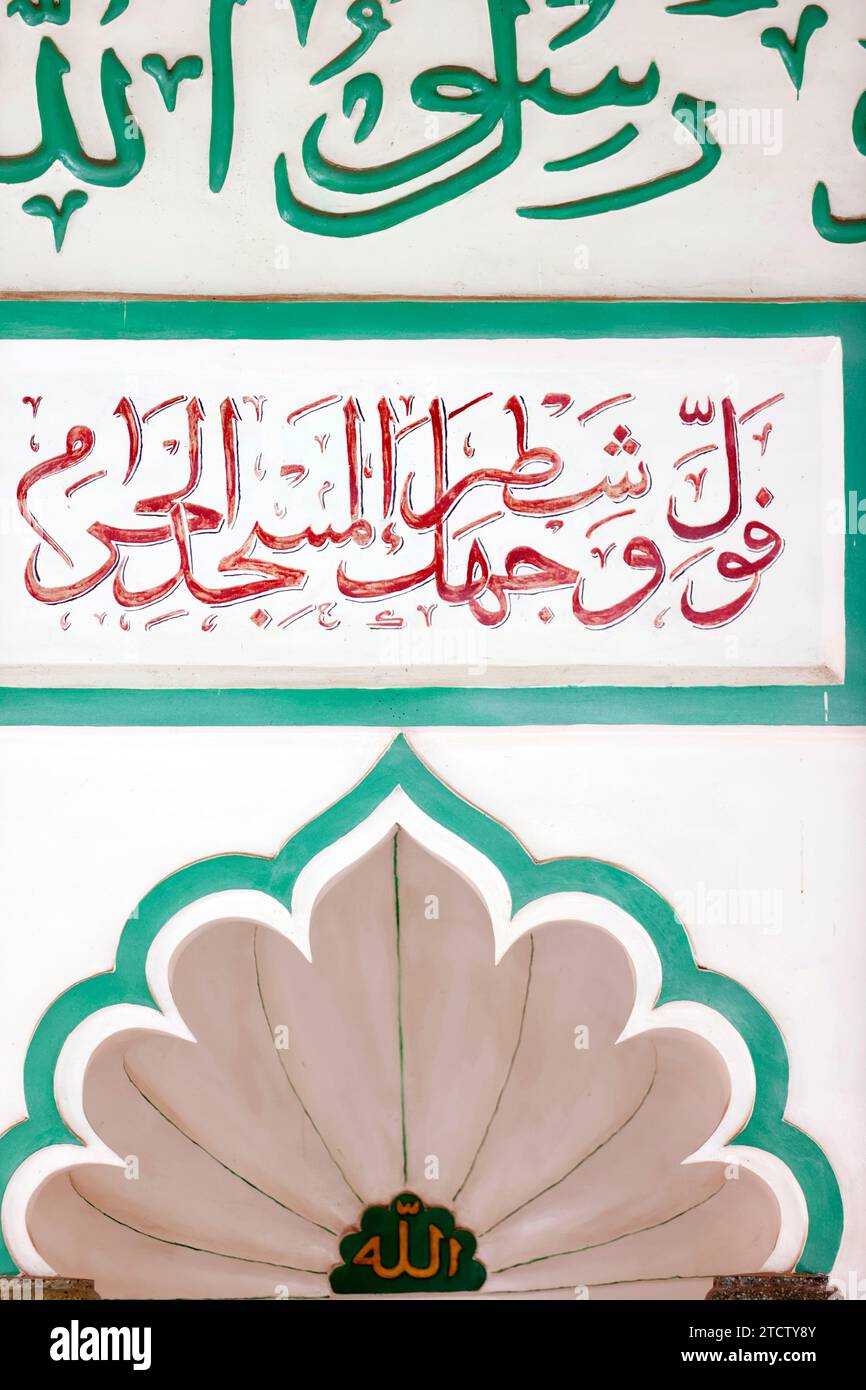 رسول الله
فَوَلِّ وَجْهَكَ شَطْرَ الْمَسْجِدِ الْحَرَامِ
الله
alamy
Image ID: 2TCTY8Y
www.alamy.com